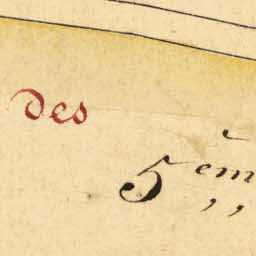 des
5 ém